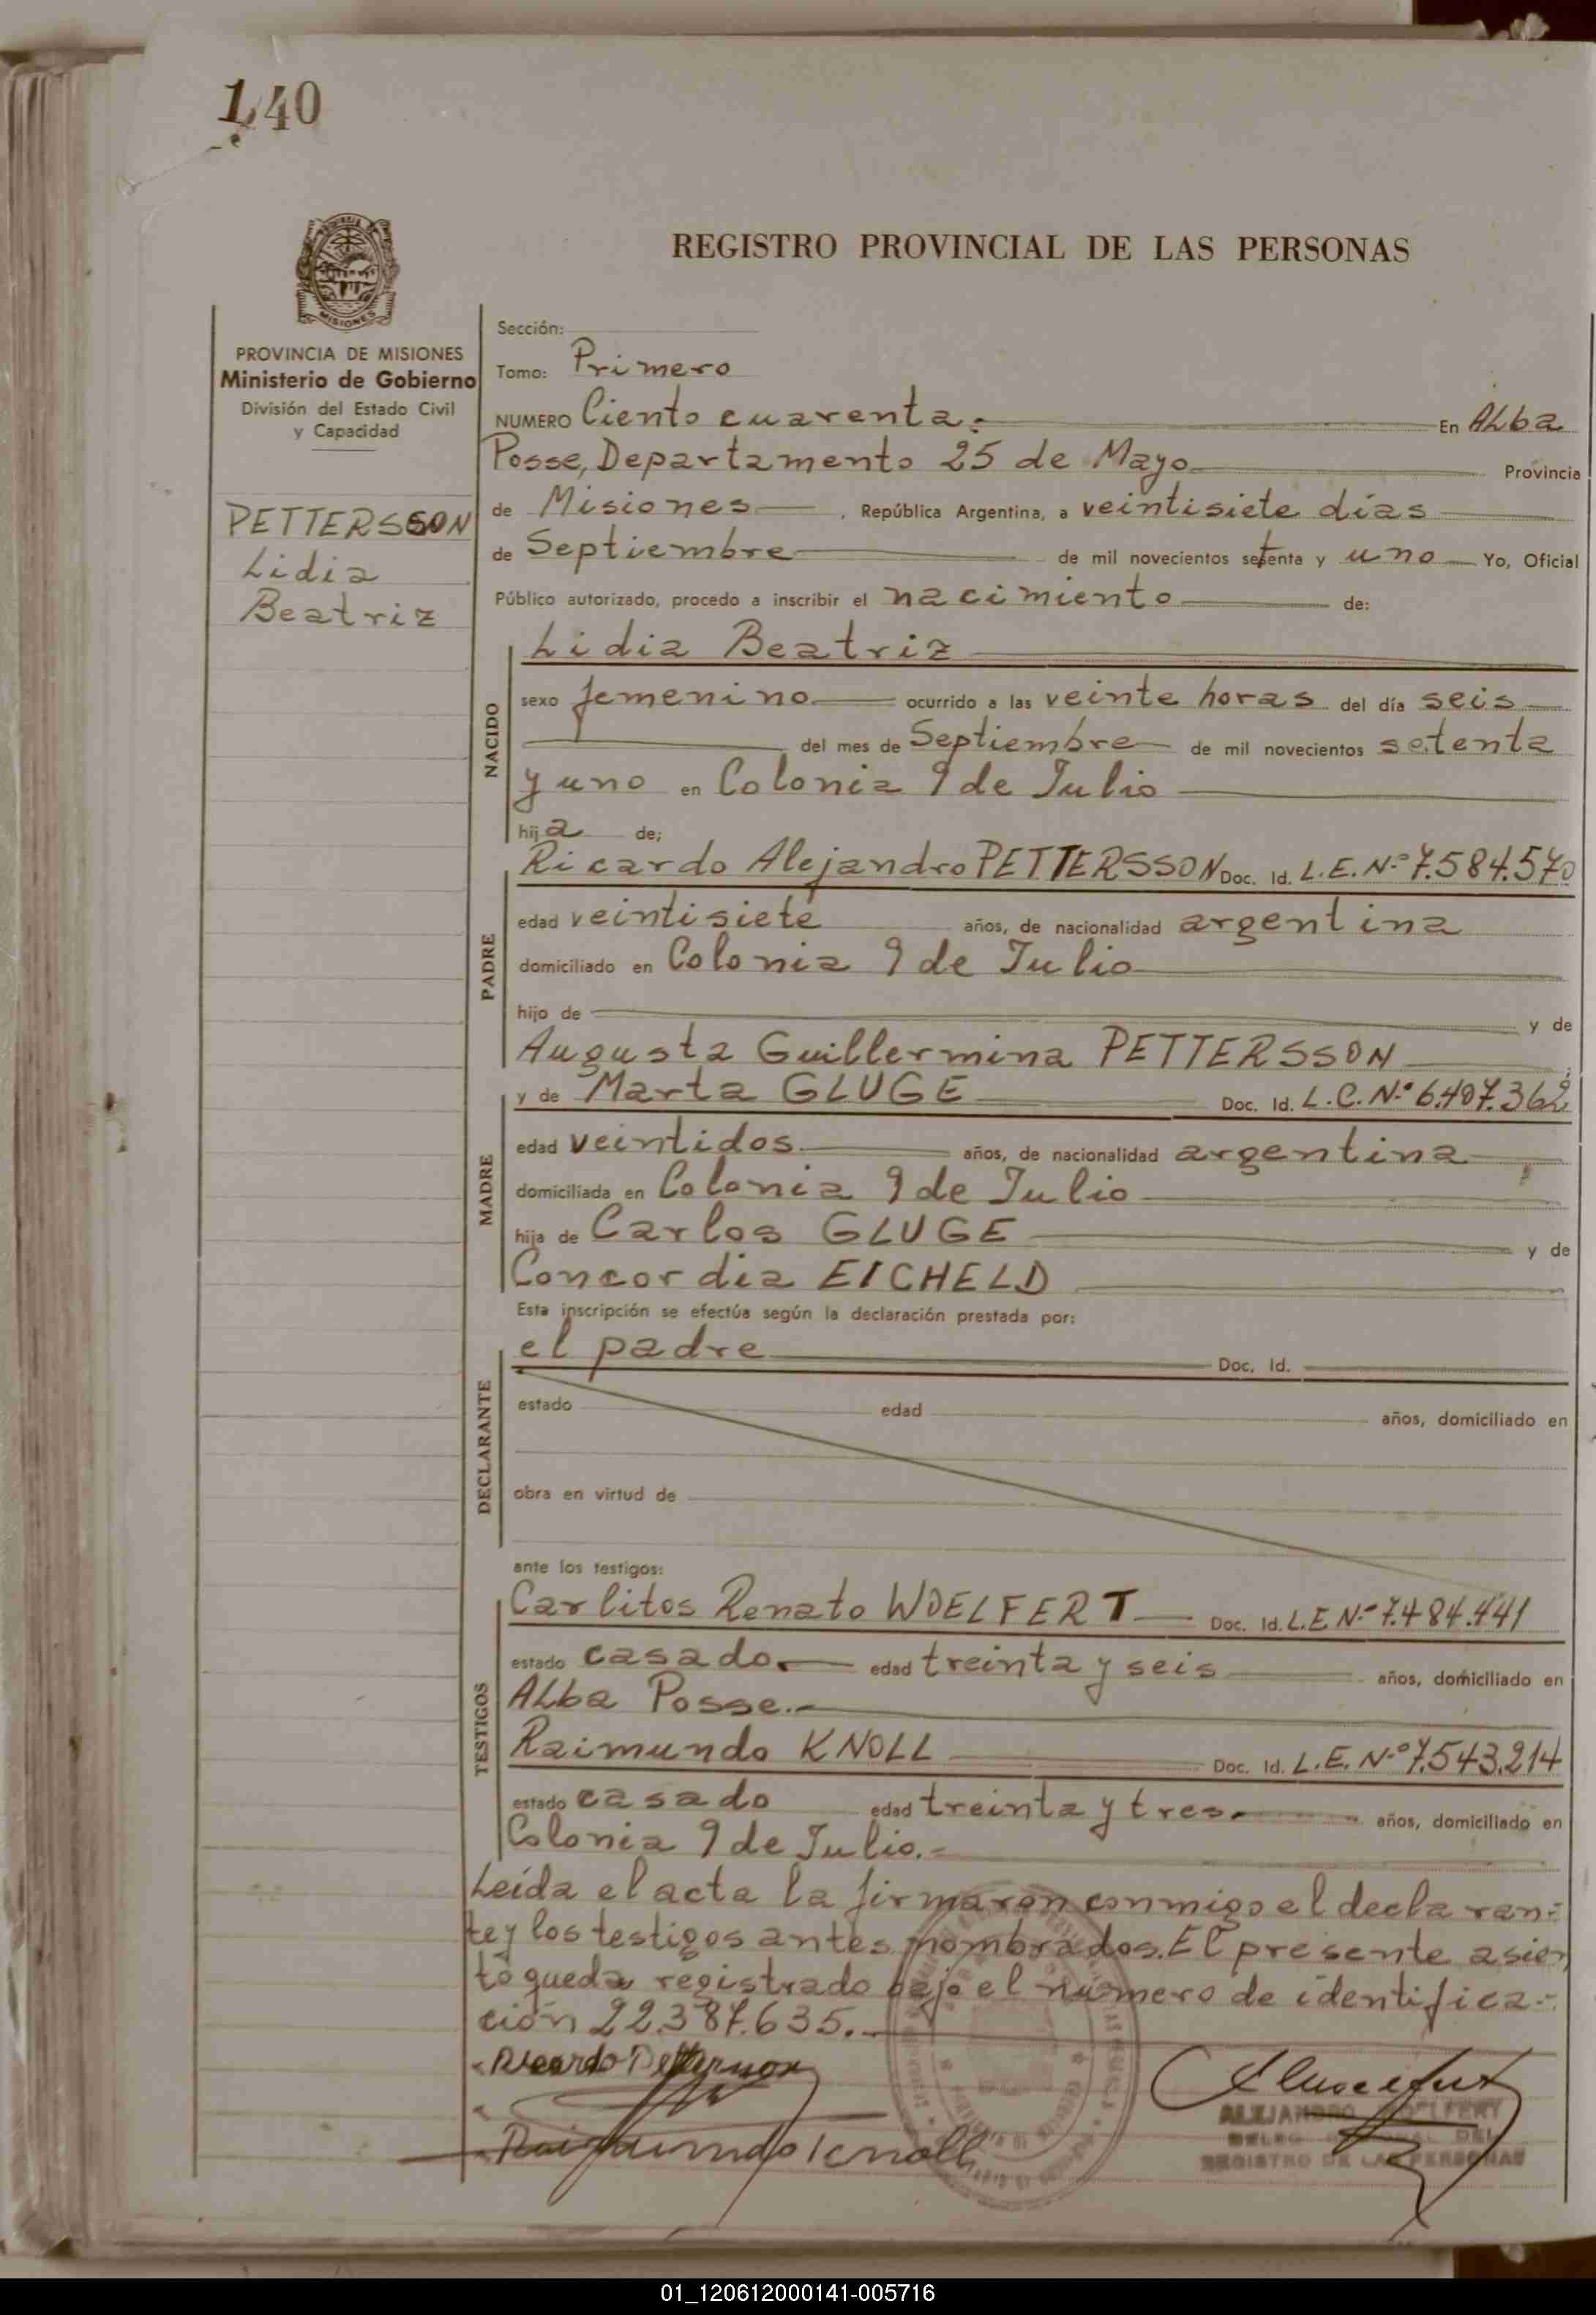 140
MISIONES
PROVINCIA DE MISIONES
Ministerio de Gobierno
División del Estado Civil
y Capacidad
PETTERSSON
Lidia
Beatriz
REGISTRO PROVINCIAL DE LAS PERSONAS
Sección:
Tomo: Primero
NUMERO Ciento cuarenta.- En Alba
Posse, Departamento 25 de Mayo Provincia
de Misiones, República Argentina, a veintisiete días
de Septiembre de mil novecientos setenta y uno Yo, Oficial
Público autorizado, procedo a inscribir el nacimiento de:
NACIDO
Lidia Beatriz
sexo femenino ocurrido a las veinte horas del día seis
del mes de Septiembre de mil novecientos setenta
y uno en Colonia 9 de Julio
hija de;
PADRE
Ricardo Alejandro PETTERSSON Doc. Id. L.E.Nº 7.584.570
edad veintisiete años, de nacionalidad argentina
domiciliado en Colonia 9 de Julio
hijo de y de
Augusta Guillermina PETTERSSON
MADRE
y de Marta GLUGE Doc. Id. L.C.Nº 6.407.362
edad veintidos años, de nacionalidad argentina
domiciliada en Colonia 9 de Julio
hija de Carlos GLUGE y de
Concordia EICHELD
Esta inscripción se efectúa según la declaración prestada por:
DECLARANTE
el padre Doc. Id.
estado edad años, domiciliado en
obra en virtud de
ante los testigos:
TESTIGOS
Carlitos Renato WOELFERT Doc. Id. L.E.Nº 7.484.441
estado casado. edad treinta y seis años, domiciliado en
Alba Posse.-
Raimundo KNOLL Doc. Id. L.E.Nº 7.543.214
estado casado edad treinta y tres. años, domiciliado en
Colonia 9 de Julio.-
Leída el acta la firmaron conmigo el declaran-
te y los testigos antes nombrados. El presente asien
to queda registrado bajo el número de identifica-
ción 22.387.635.
Raimundo Knoll
ALEJANDRO WOELFERT
DEL
REGISTRO DE LAS PERSONAS
01_120612000141-005716